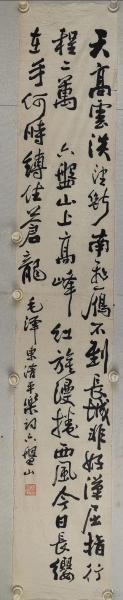 天高雲淡望斷南飛雁不到長城非好漢屈指行
程二萬 六盤山上高峰 紅旗漫捲西風今日長纓
在手何時縛住蒼龍 毛澤東清平樂詞六盤山